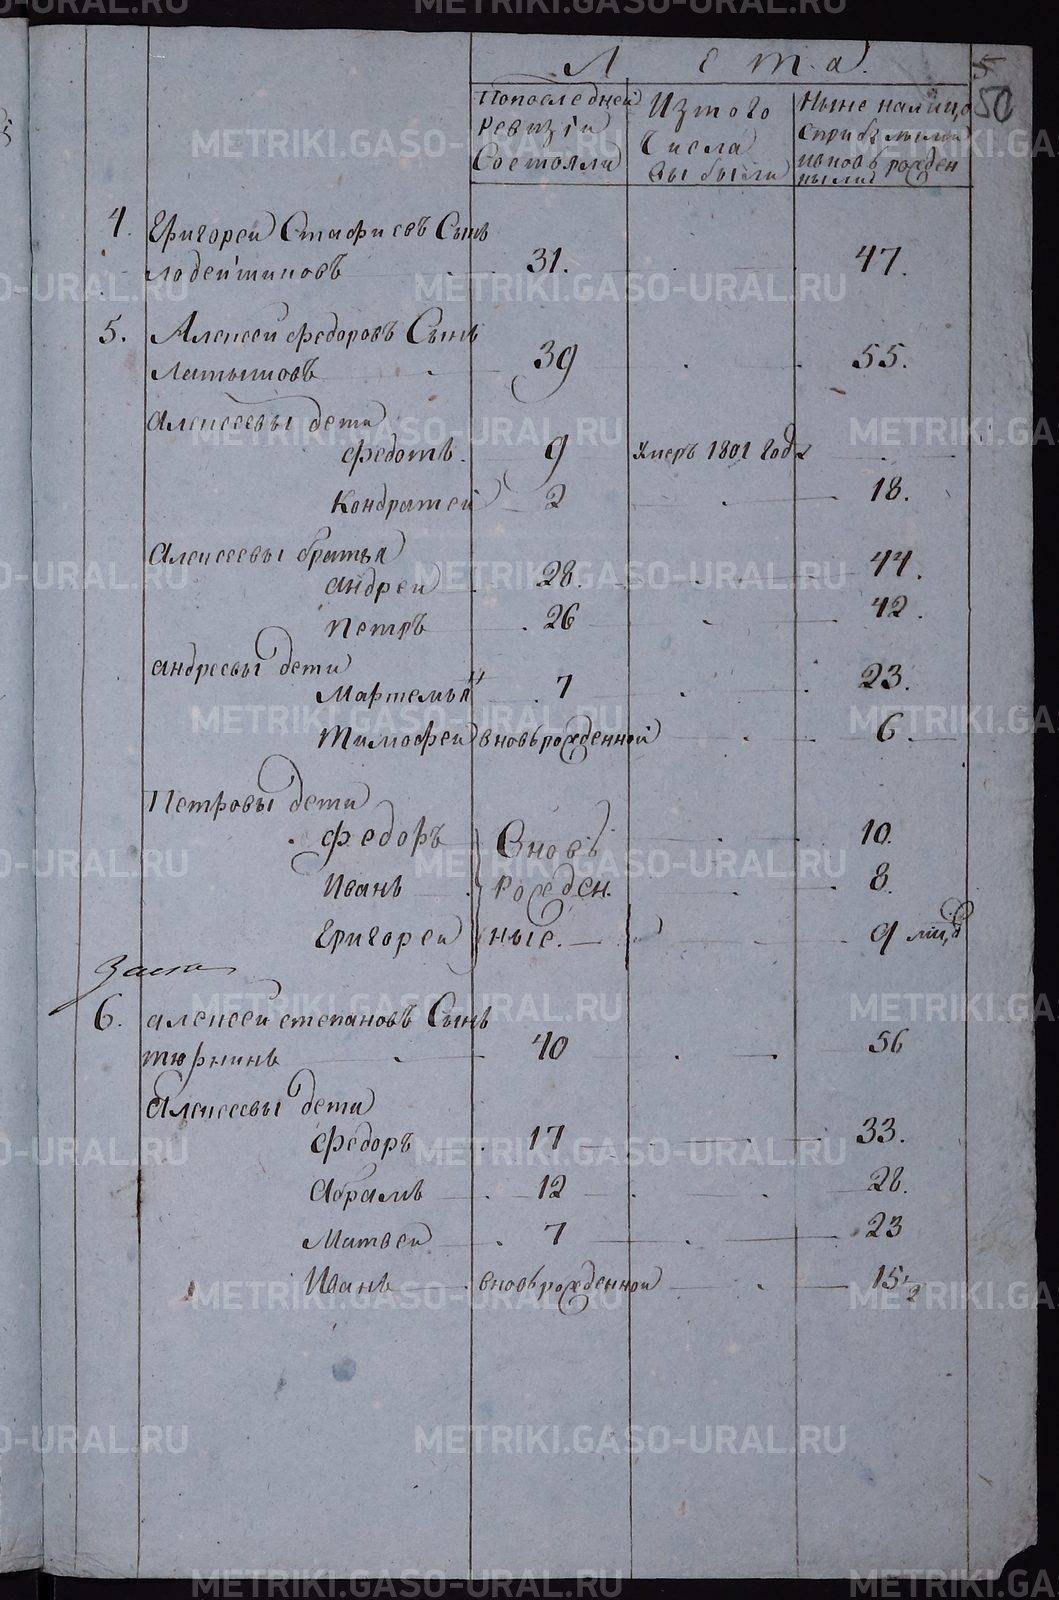 Лета.
5
50
По последней ревизiи состояли
Из того числа выбыли
Ныне налицо с прибылыми и вновь рожденными
4. Григореи Стафиевъ Сынъ
лодеищиковъ 31. 47.
5. Алексеи федоровъ Сынъ
Латышовъ 39 55.
алексеевы дети
федотъ. 9 Умеръ 1801 года
Кондратеи 2 18.
алексеевы братья
андреи 28. 44.
петръ 26 42.
андреевы дети
Мартемья 7 23.
тимофеи вновьрожденнои 6.
Петровы дети
федоръ Вновь 10.
Иванъ рожден 8.
Григореи ные. 9 миц
6. алексеи степановъ Сынъ
тюркинъ 40 56
алексеевы дети
федоръ 17 33.
абрамъ 12 28.
Матвеи 7 23
Иванъ вновьрожденнои 15 1/2
METRIKI.GASO-URAL.RU